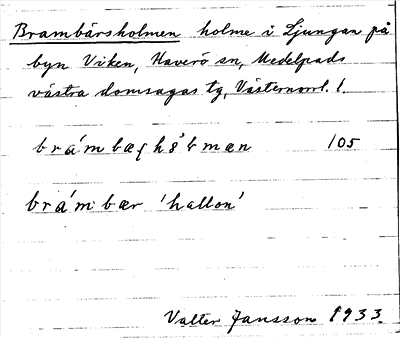 Brambärsholmen holme i Ljungan på
byn Viken, Haverö sn, Medelpads
västra domsagas tg, Västernorrl. l.
brámbæʂhɷ̀ɫmæn 105
brámbær 'hallon'
Valter Jansson 1933.